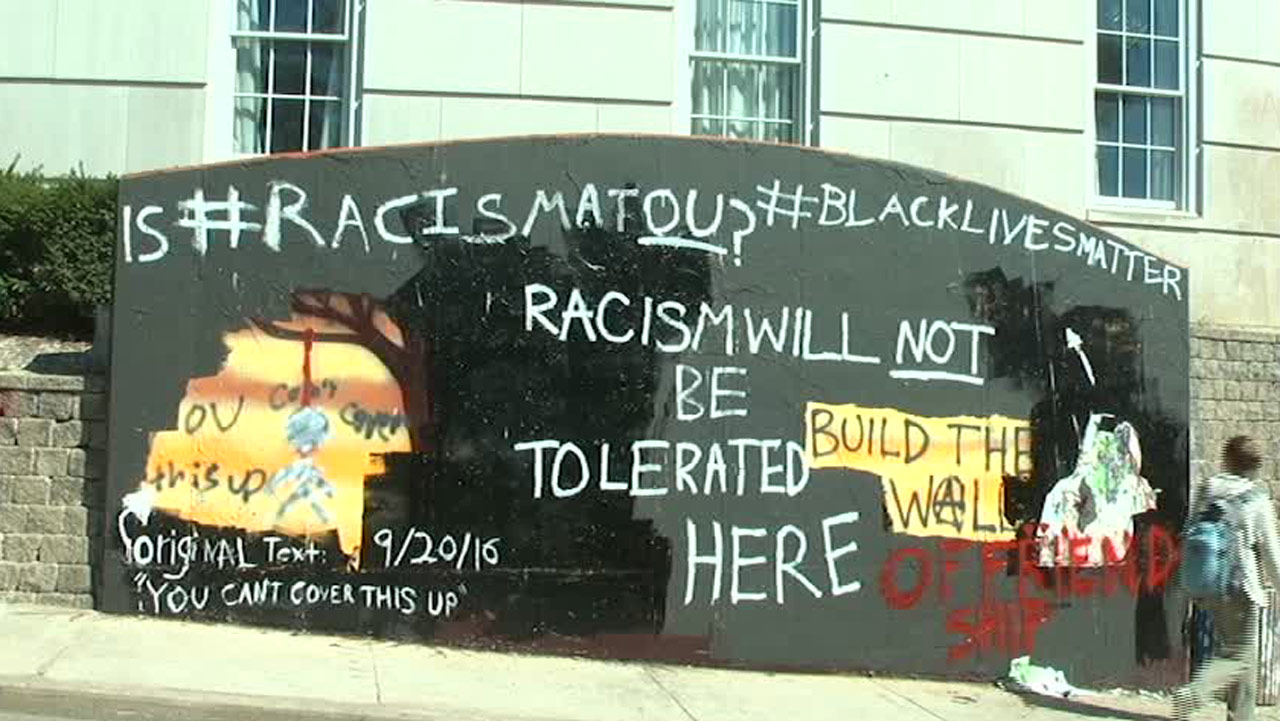 IS #RACISMATOU? #BLACKLIVESMATTER
RACISM WILL NOT
BE
TOLERATED
HERE
OU Can't Cover
this up
Original Text: 9/20/16
"YOU CAN'T COVER THIS UP"
BUILD THE
WALL
OF FRIEND
SHIP